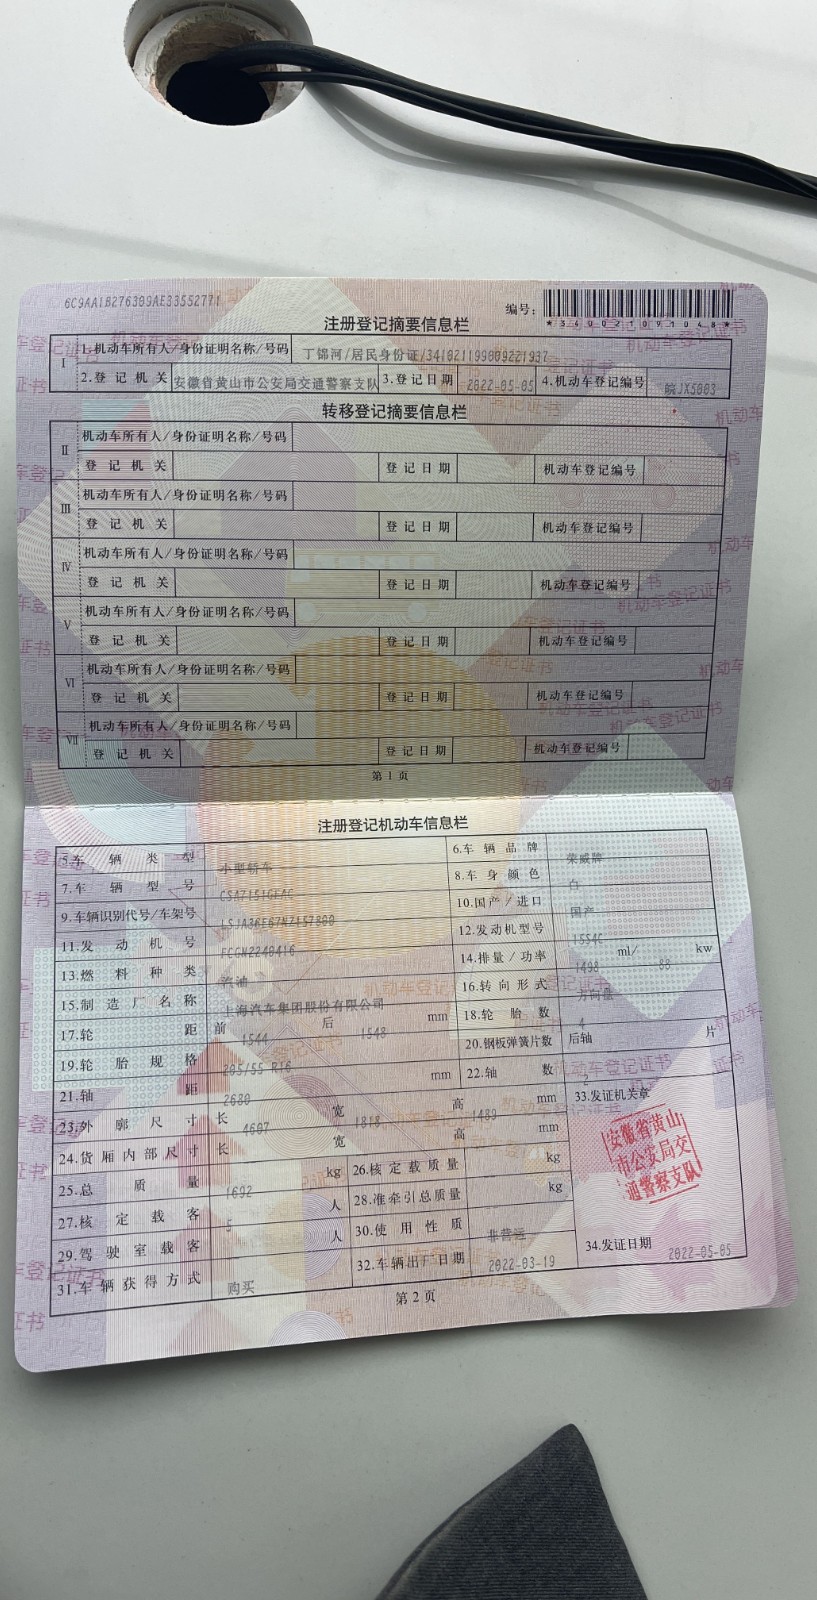 6C9AA1B276309AE33552771
编号:
*340021091048*
注册登记摘要信息栏
I 1.机动车所有人/身份证明名称/号码 丁锦河/居民身份证/341021199809221937
2.登记机关 安徽省黄山市公安局交通警察支队 3.登记日期 2022-05-05 4.机动车登记编号 皖JX5003
转移登记摘要信息栏
II 机动车所有人/身份证明名称/号码
登记机关 登记日期 机动车登记编号
III 机动车所有人/身份证明名称/号码
登记机关 登记日期 机动车登记编号
IV 机动车所有人/身份证明名称/号码
登记机关 登记日期 机动车登记编号
V 机动车所有人/身份证明名称/号码
登记机关 登记日期 机动车登记编号
VI 机动车所有人/身份证明名称/号码
登记机关 登记日期 机动车登记编号
VII 机动车所有人/身份证明名称/号码
登记机关 登记日期 机动车登记编号
第1页
注册登记机动车信息栏
5.车辆类型 小型轿车 6.车辆品牌 荣威牌
7.车辆型号 CSA7151GEAC 8.车身颜色 白
9.车辆识别代号/车架号 LSJA36E67NZ157800 10.国产/进口 国产
11.发动机号 FCGN2240416 12.发动机型号
13.燃料种类 汽油 14.排量/功率 1498 ml/ 88 kw
15.制造厂名称 上海汽车集团股份有限公司 16.转向形式 方向盘
17.轮距 前 1544 后 1548 mm 18.轮胎数 4
19.轮胎规格 205/55 R16 20.钢板弹簧片数 后轴 片
21.轴距 2680 mm 22.轴数 2
23.外廓尺寸 长 4607 宽 1818 高 1489 mm 33.发证机关章
24.货厢内部尺寸 长 宽 高 mm
安徽省黄山
市公安局交
通警察支队
25.总质量 1692 kg 26.核定载质量 kg
27.核定载客 5 人 28.准牵引总质量 kg
29.驾驶室载客 人 30.使用性质 非营运
31.车辆获得方式 购买 32.车辆出厂日期 2022-03-19 34.发证日期 2022-05-05
第2页